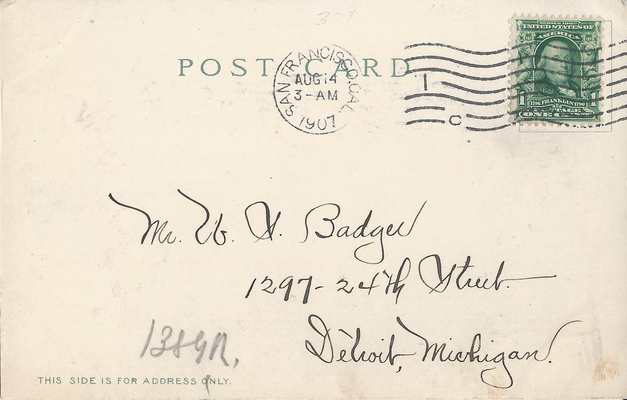 309
POST CARD
SAN FRANCISCO, CAL.
AUG 14
3-AM
1907
1
C
UNITED STATES OF
AMERICA
1 FRANKLIN 1
POSTAGE
ONE CENT
Mr. W. H. Badger
1297-24th Street
Detroit, Michigan.
THIS SIDE IS FOR ADDRESS ONLY.